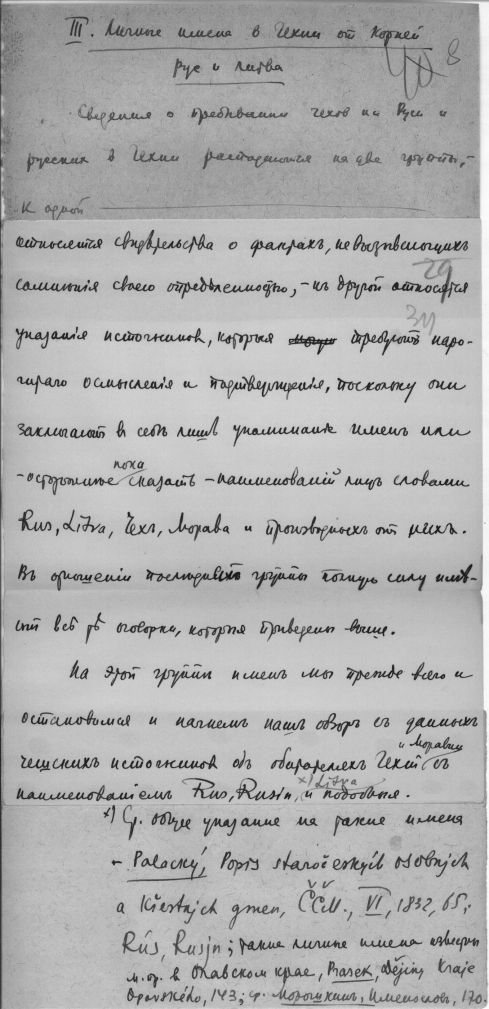 III. Личные имена в Чехии от корней
Рус и Литва
408
Сведения о пребывании чехов на Руси и
русских в Чехии распадаются на две группы,-
к одной
относятся свидѣтельства о фактахъ, не вызывающихъ
29
сомнѣнія своего опредѣленностью, - къ другой относятся
31
указанія источниковъ, которыя требуютъ
осмысленія и подтвержденія, поскольку они
заключаютъ въ себѣ лишь упоминаніе именъ или
пока
- осторожнѣе сказать - наименованій лицъ словами
Rus, Litva, Чехъ, Морава и производныхъ отъ нихъ.
Въ отношеніи послѣдней группы полную силу имѣ-
ютъ всѣ тѣ оговорки, которыя приведены выше.
На этой группѣ именъ мы прежде всего и
остановимся и начнемъ нашъ обзоръ съ данныхъ
и Моравіи
чешскихъ источниковъ объ обитателяхъ Чехіи съ
x) Litva
наименованіемъ Rus, Rusin, и подобныя.
x) Ср. общее указание на такие имена
- Palacký, Popis staročeských osobných
a křestných gmen, ČČM., VI, 1832, 65;
Rús, Rusjn; такие личные имена известны
м. пр. в Опавском крае, Prasek, Dějiny Kraje
Opavského, 143; ср. Морошкинъ, Именословъ, 170.